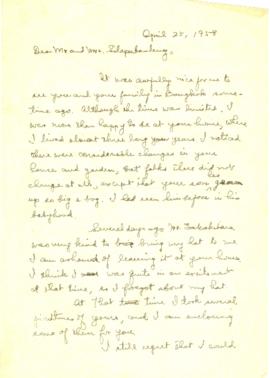 April 25, 1958
Dear Mr and Mrs.
It was awfully nice for me to
see you and your family in Bangkok some-
time ago. Although the time was limited, I
was more than happy to be at your home, where
I lived almost three long years. I noticed
there were considerable changes in your
house and garden, but folks there did not
change at all, except that your son has
up so big a boy. I had seen him before in his
babyhood.
Several days ago Mr. Sakakibara
was very kind to bring my hat to me
I am ashamed of leaving it at your house,
I think I was quite in an excitement
at that time, so I forgot about my hat.
At that time I took several
pictures of yours, and I am enclosing
some of them for you.
I still regret that I could